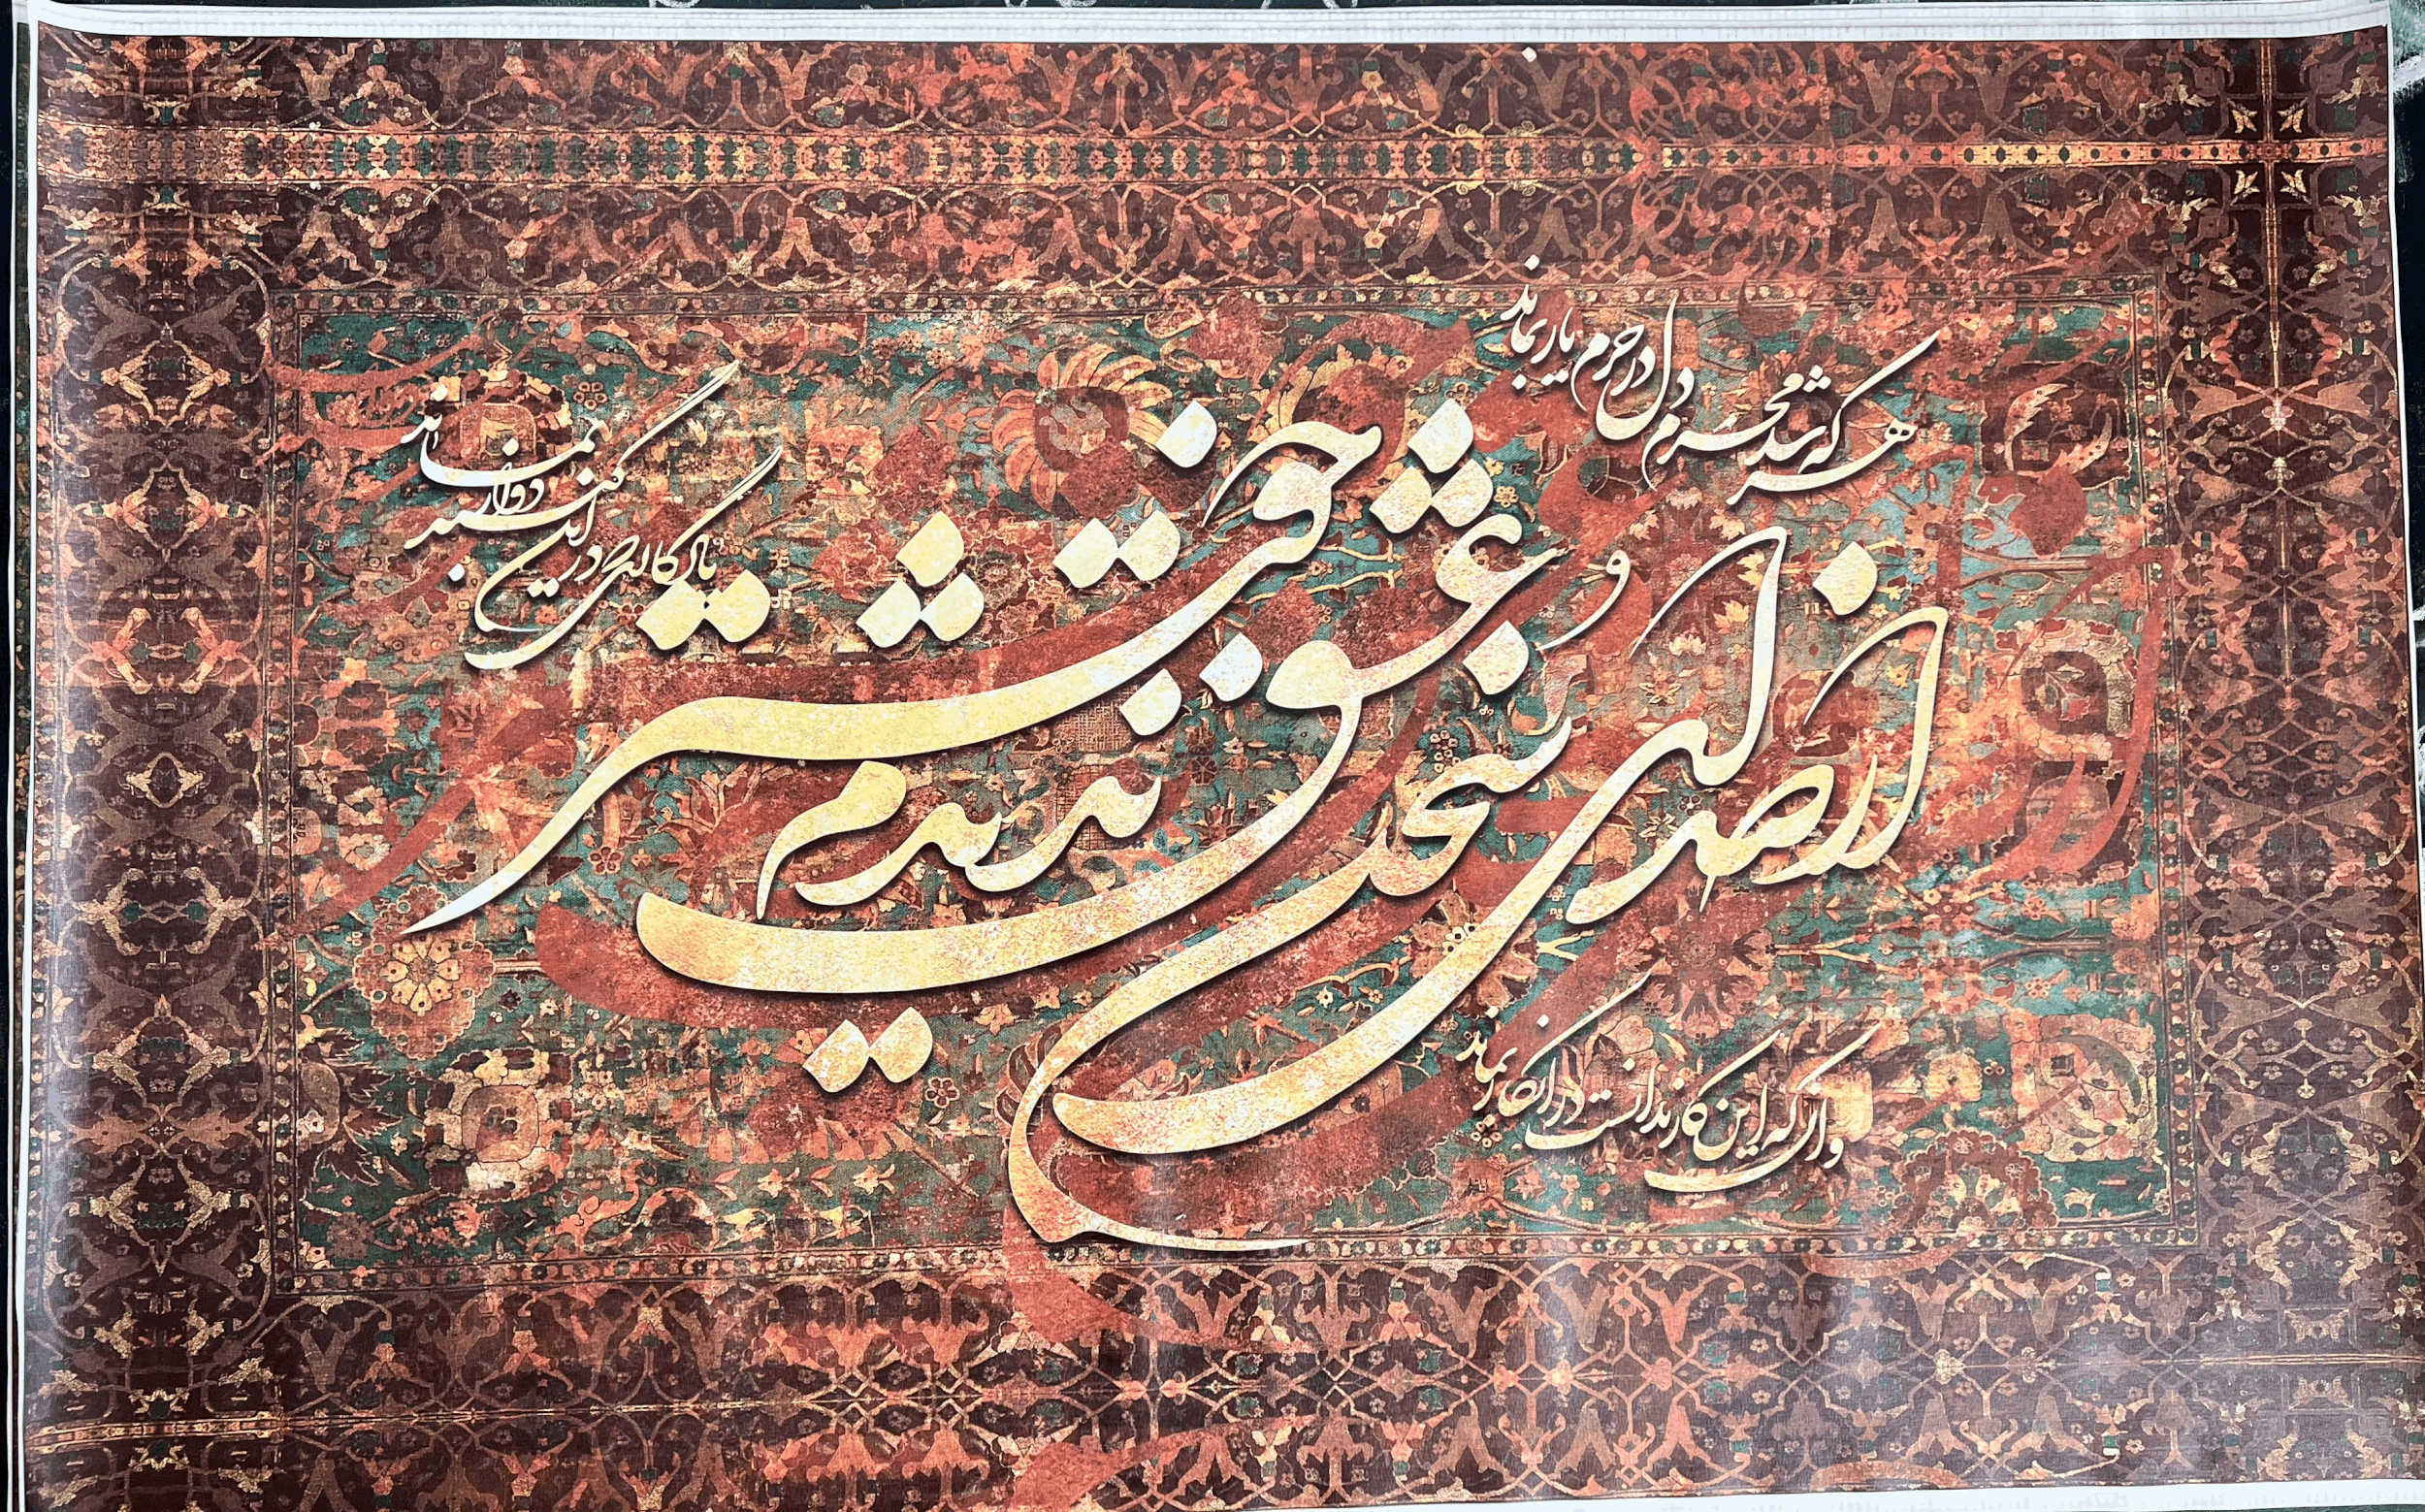 هر که شد محرم دل در حرم یار بماند
وان که این کار ندانست در انکار بماند
از صدای سخن عشق ندیدم خوشتر
یادگاری که در این گنبد دوار بماند